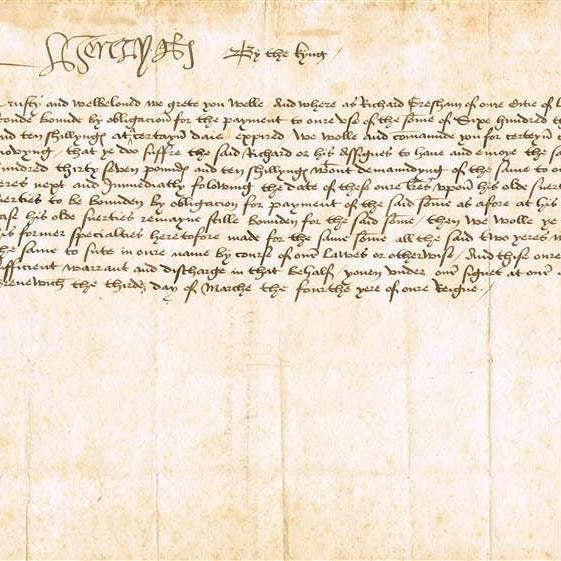 Henry R By the kyng
Trusty and welbeloved we grete you welle And where as Richard Gresham of oure Citie of
bounde by obligacion for the payment to oure use of the some of Sixe hundred
and ten shillynges at certayn daies expired We wolle and comaunde you for certeyn
movyng that ye doo suffre the said Richard or his Assignes to have and enioye the
hundred thirty seven poundes and ten shillynges without demaundyng of the same to
yeres next and Immediatly folowing the date of these oure lres upon his olde
suerties to be bounden by obligacion for payment of the said some as afore at his
case his olde suerties remayne stille bounden for the said some then we wolle ye
his former specialties heretofore made for the same some all the said two yeres
the same to sute in oure name by course of oure Lawes or otherwise And these oure
sufficient warrant and discharge in that behalf yoven under oure signet at oure
Grenewich the thirde day of Marche the fourthe yere of oure Reigne